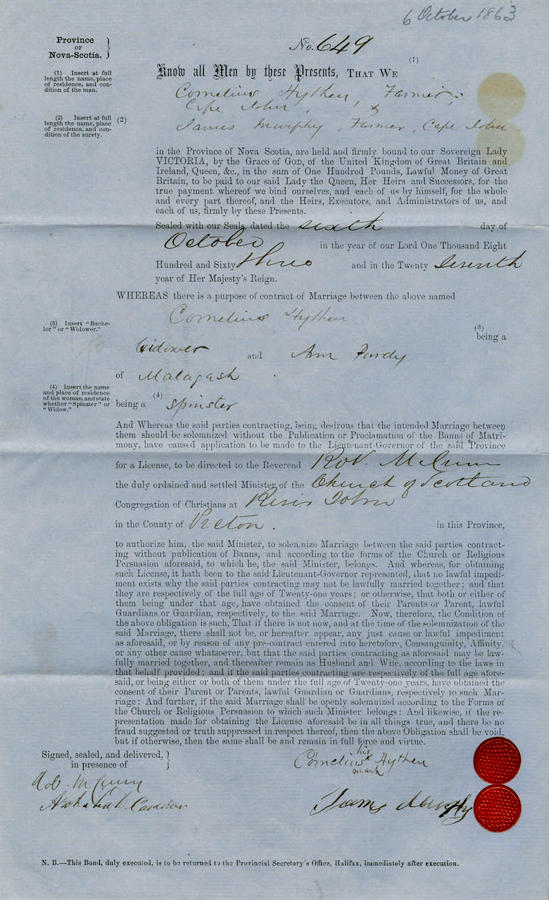 6 October 1863
Province
OF
Nova-Scotia.
No. 649
(1) Insert at full length the name, place of residence, and condition of the man.
(2) Insert at full length the name, place of residence, and condition of the surety.
(1)
Know all Men by these Presents, THAT WE
Cornelius Hythen, Farmer,
Cape John &
(2) James Murphy, Farmer, Cape John
in the Province of Nova Scotia, are held and firmly bound to our Sovereign Lady
VICTORIA, by the Grace of GOD, of the United Kingdom of Great Britain and
Ireland, Queen, &c., in the sum of One Hundred Pounds, Lawful Money of Great
Britain, to be paid to our said Lady the Queen, Her Heirs and Successors, for the
true payment whereof we bind ourselves, and each of us by himself, for the whole
and every part thereof, and the Heirs, Executors, and Administrators of us, and
each of us, firmly by these Presents.
Sealed with our Seals, dated the sixth day of
October in the year of our Lord One Thousand Eight
Hundred and Sixty three and in the Twenty Seventh
year of Her Majesty's Reign.
WHEREAS there is a purpose of contract of Marriage between the above named
Cornelius Hythen
(3) Insert "Bachelor" or "Widower."
(3)
being a
Widower and Ann Purdy
of Malagash
(4) Insert the name and place of residence of the woman, and state whether "Spinster" or "Widow."
(4)
being a Spinster
And Whereas the said parties contracting, being desirous that the intended Marriage between
them should be solemnized without the Publication or Proclamation of the Banns of Matri-
mony, have caused application to be made to the Lieutenant-Governor of the said Province
for a License, to be directed to the Reverend Rob. McCunn
the duly ordained and settled Minister of the Church of Scotland
Congregation of Christians at River John
in the County of Pictou. in this Province,
to authorize him, the said Minister, to solemnize Marriage between the said parties contract-
ing without publication of Banns, and according to the forms of the Church or Religious
Persuasion aforesaid, to which he, the said Minister, belongs. And whereas, for obtaining
such License, it hath been to the said Lieutenant-Governor represented, that no lawful impedi-
ment exists why the said parties contracting may not be lawfully married together; and that
they are respectively of the full age of Twenty-one years; or otherwise, that both or either of
them being under that age, have obtained the consent of their Parents or Parent, lawful
Guardians or Guardian, respectively, to the said Marriage. Now, therefore, the Condition of
the above obligation is such, That if there is not now, and at the time of the solemnization of the
said Marriage, there shall not be, or hereafter appear, any just cause or lawful impediment
as aforesaid, or by reason of any pre-contract entered into heretofore, Consanguinity, Affinity,
or any other cause whatsoever, but that the said parties contracting as aforesaid may be law-
fully married together, and thereafter remain as Husband and Wife, according to the laws in
that behalf provided; and if the said parties contracting are respectively of the full age afore-
said, or being either or both of them under the full age of Twenty-one years, have obtained the
consent of their Parent or Parents, lawful Guardian or Guardians, respectively to such Mar-
riage: And further, if the said Marriage shall be openly solemnized according to the Forms of
the Church or Religious Persuasion to which such Minister belongs: And likewise, if the re-
presentation made for obtaining the License aforesaid be in all things true, and there be no
fraud suggested or truth suppressed in respect thereof, then the above Obligation shall be void,
but if otherwise, then the same shall be and remain in full force and virtue.
Signed, sealed, and delivered,
in presence of
his
Cornelius x Hythen
mark
Rob. McCunn
James Murphy
N. B.—This Bond, duly executed, is to be returned to the Provincial Secretary's Office, Halifax, immediately after execution.